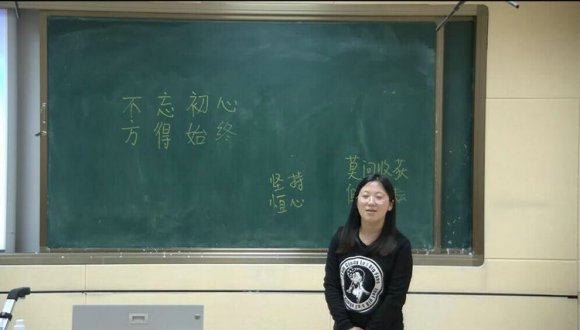 不忘初心
方得始终
坚持
恒心
莫问收获